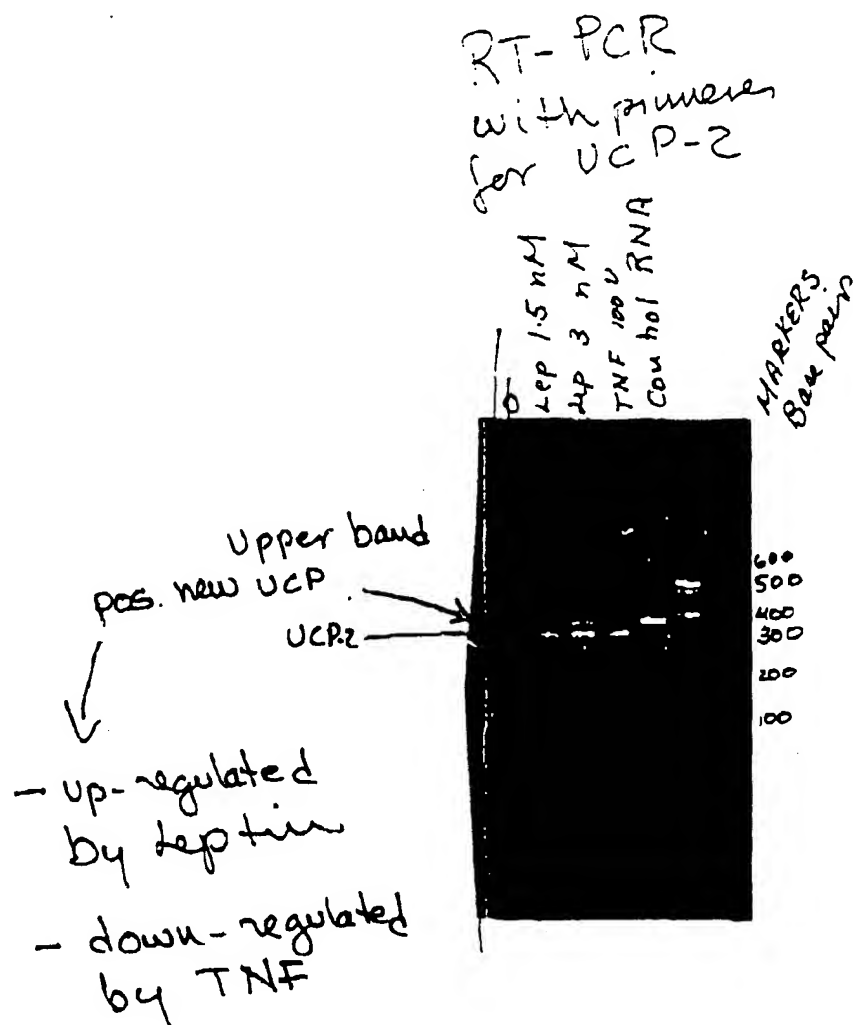 RT-PCR
with primers
for UCP-2
0
Lep 1.5 nM
Lep 3 nM
TNF 100 U
Control RNA
MARKERS
Base pairs
Upper band
pos. new UCP
UCP-2
600
500
400
300
200
100
- up-regulated
by Leptin
- down-regulated
by TNF